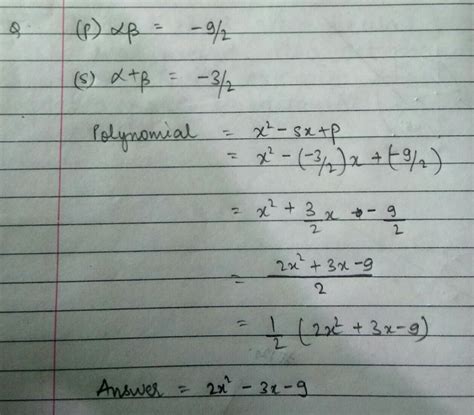 Q (P) αβ = -9/2
(S) α+β = -3/2
Polynomial = x² - Sx + P
= x² - (-3/2)x + (-9/2)
= x² + 3/2 x - 9/2
= (2x² + 3x - 9)/2
= 1/2 (2x² + 3x - 9)
Answer = 2x² - 3x - 9